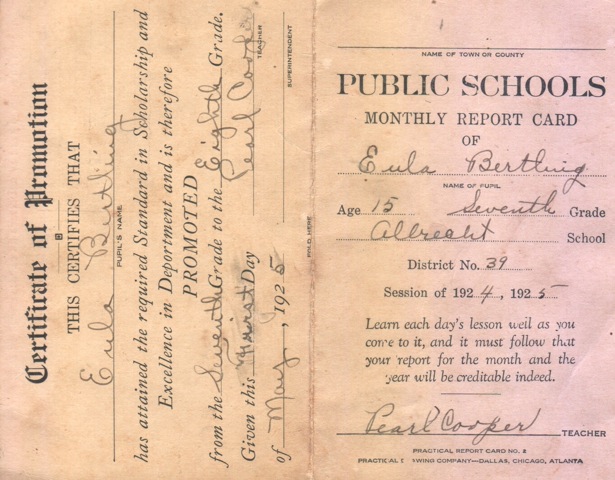 Certificate of Promotion
THIS CERTIFIES THAT
Eula Bertling
PUPIL'S NAME
has attained the required Standard in Scholarship and
Excellence in Deportment and is therefore
PROMOTED
from the Seventh Grade to the Eighth Grade.
Given this First Day
of May, 1925
Pearl Cooper
TEACHER
SUPERINTENDENT
FOLD HERE
NAME OF TOWN OR COUNTY
PUBLIC SCHOOLS
MONTHLY REPORT CARD
OF
Eula Bertling
NAME OF PUPIL
Age 15 Seventh Grade
Albrecht School
District No. 39
Session of 1924, 1925
Learn each day's lesson well as you
come to it, and it must follow that
your report for the month and the
year will be creditable indeed.
Pearl Cooper TEACHER
PRACTICAL REPORT CARD NO. 2
PRACTICAL DRAWING COMPANY—DALLAS, CHICAGO, ATLANTA